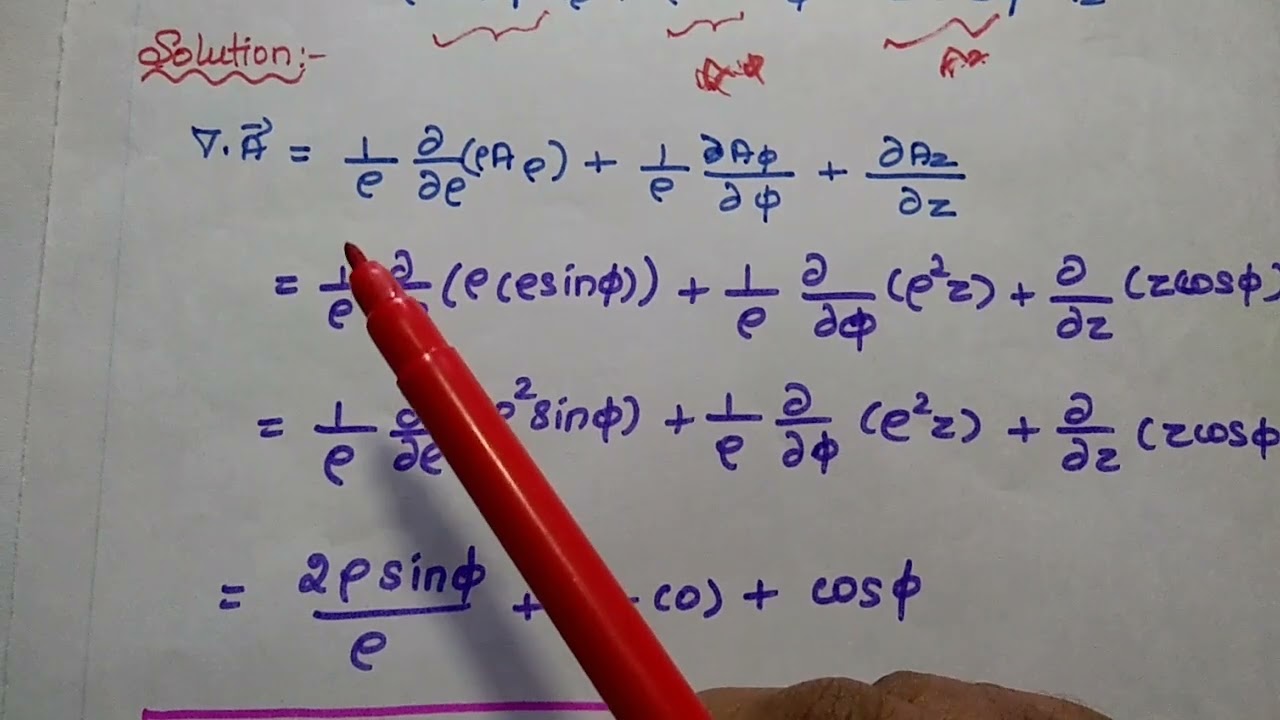 Solution:-
∇.A⃗ = 1/ρ ∂/∂ρ (ρAρ) + 1/ρ ∂Aφ/∂φ + ∂Az/∂z
= 1/ρ ∂/ (ρ(ρsinφ)) + 1/ρ ∂/∂φ (ρ²z) + ∂/∂z (zcosφ)
= 1/ρ ∂/∂ρ ρ²sinφ) + 1/ρ ∂/∂φ (ρ²z) + ∂/∂z (zcosφ
= 2ρsinφ/ρ + (0) + cosφ